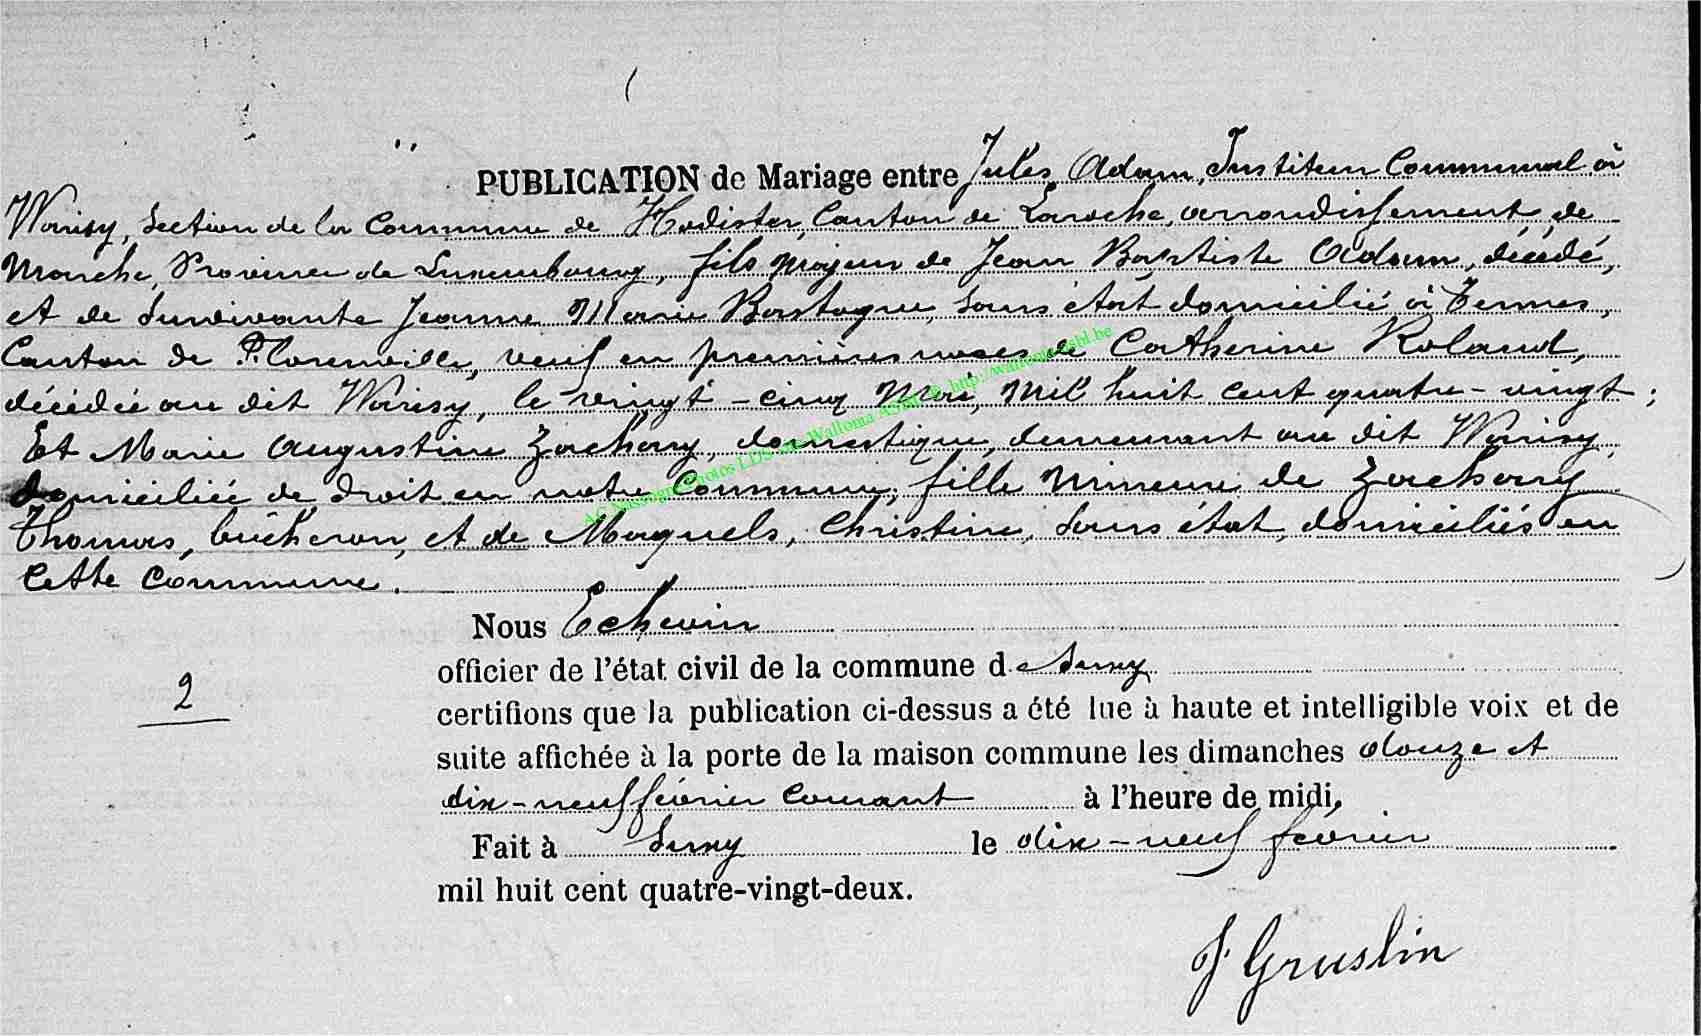 PUBLICATION de Mariage entre Jules Adam, Institeur Communal à
Warisy, Section de la Commune de Hodister, Canton de Laroche, arrondissement de
Marche, Province de Luxembourg, fils majeur de Jean Baptiste Adam, décédé,
et de Survivante Jeanne Marie Bastogne, Sans état domicilié à Termes,
Canton de Florenville, veuf en premières noces de Catherine Roland,
décédée au dit Warisy, le vingt-cinq Mai, Mil huit cent quatre-vingt;
Et Marie Augustine Zachary, domestique, demeurant au dit Warisy,
domiciliée de droit en notre Commune, fille Mineure de Zachary
Thomas, bûcheron, et de Maquels, Christine, Sans état, domiciliés en
Cette Commune.
Nous Echevin
officier de l'état civil de la commune d
certifions que la publication ci-dessus a été lue à haute et intelligible voix et de
2
suite affichée à la porte de la maison commune les dimanches douze et
dix-neuf février Courant à l'heure de midi,
Fait à le dix-neuf février
mil huit cent quatre-vingt-deux.
J Gruslin